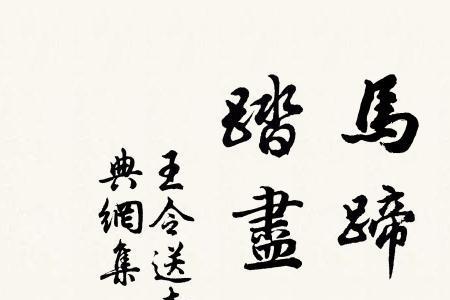 馬蹄
踏盡
王令送
典網集